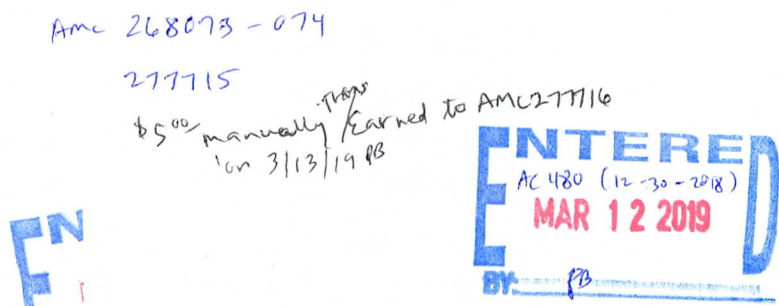 AMC 268073-074
277715
$5.00 manually Trans/Earned to AMC277716
on 3/13/19 PB
ENTERED
AC 480 (12-30-2018)
MAR 12 2019
BY: PB
EN